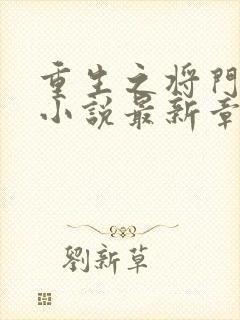 重生之将門
小說最新章
劉新草